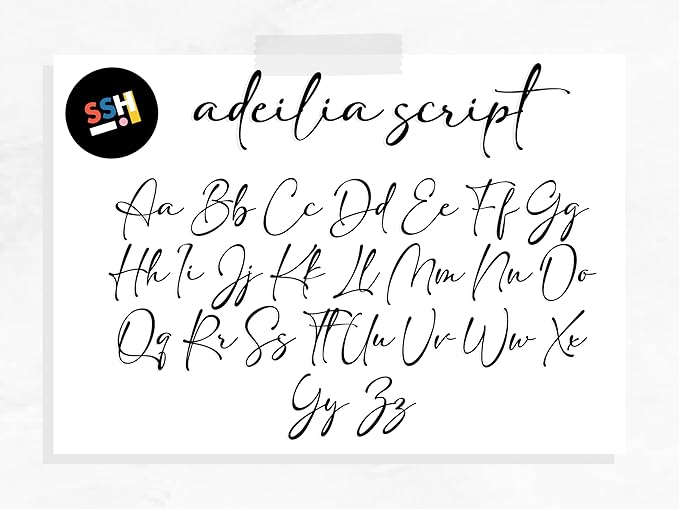 SSH
adeilia script
Aa Bb Cc Dd Ee Ff Gg
Hh Ii Jj Kk Ll Mm Nn Oo
Qq Rr Ss Tt Uu Vv Ww Xx
Yy Zz